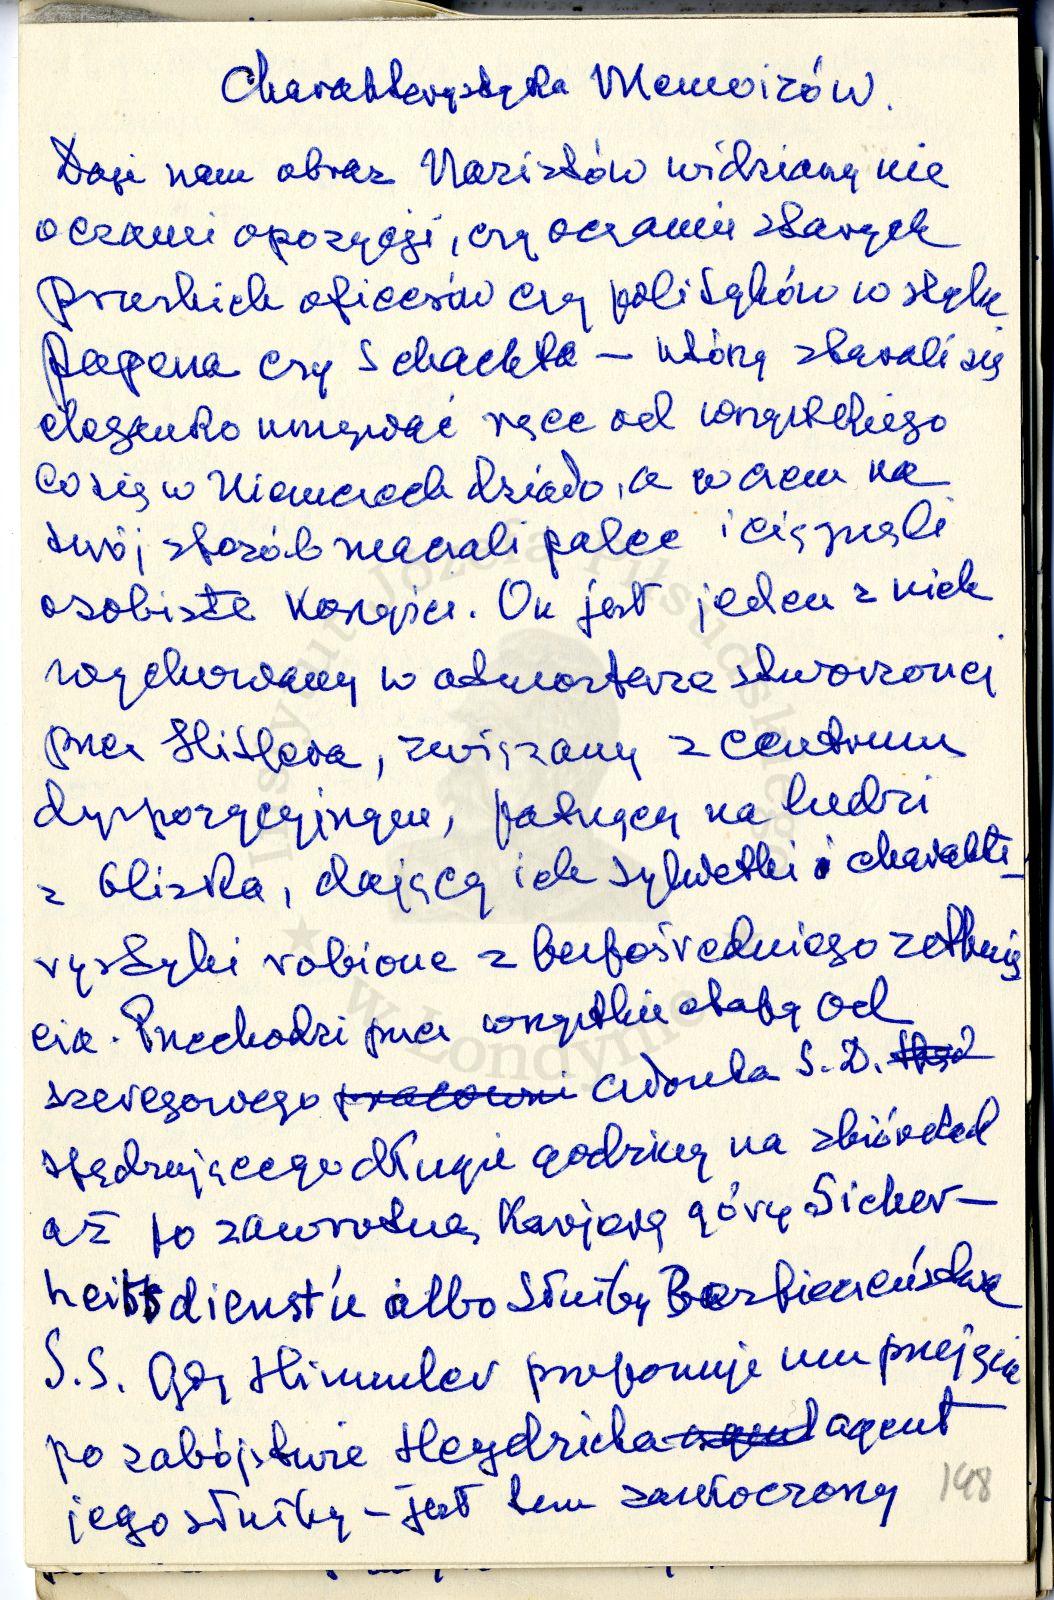 Charakterystyka Memoirów.
Daje nam obraz Nazistów widziany nie
oczami opozycji, czy oczami starych
pruskich oficerów czy polityków w stylu
Papena czy Schachta – którzy starali się
elegancko umywać ręce od wszystkiego
co się w Niemczech działo, a w czem na
swój sposób maczali palce i ciągnęli
osobiste korzyści. On jest jeden z nich
wychowany w atmosferze stworzonej
przez Hitlera, związany z centrum
dyspozycyjnym, patrzący na ludzi
z bliska, dający ich sylwetki i charakte-
rystyki robione z bezpośredniego zetknię
cia. Przechodzi przez wszystkie etapy od
szeregowego pracowni członka S.D.
spędzającego długie godziny na zbiórkach
aż po zawrotną karjerę góry Sicher-
heitsdienst'u albo Służby Bezpieczeństwa
S.S. Gdy Himmler proponuje mu przejęcie
po zabójstwie Heydricha agend agend
jego służby – jest tem zaskoczony
148
Instytut Józefa Piłsudskiego
w Londynie